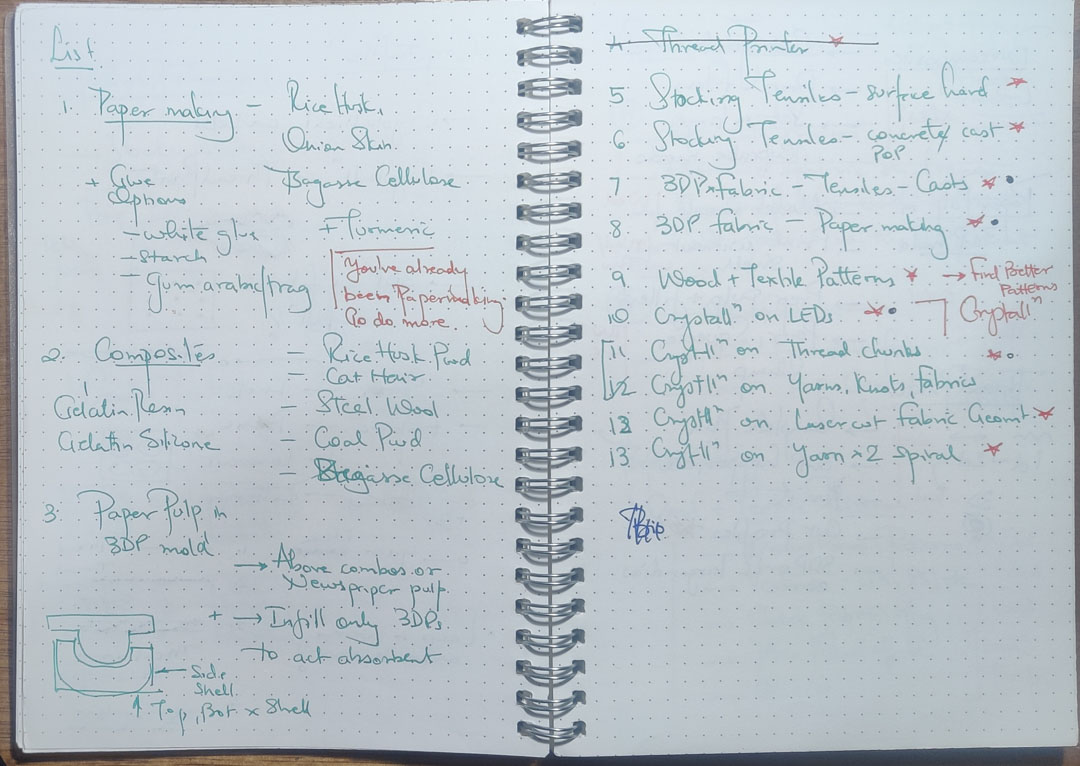 List
1. Paper making - Rice Husk,
Onion Skin.
+ Glue Bagasse Cellulose
Options
- white glue + Turmeric
- starch
- Gum arabic/trag
You've already
been Papermaking
Go do more.
2. Composites - Rice Husk Pwd
- Cat Hair
Gelatin Resin - Steel Wool
Gelatin Silizone - Coal Pwd
- Bagasse Cellulose
3. Paper Pulp in
3DP mold
→ Above combos or
Newspaper pulp
+ → Infill only 3DPs
to act absorbent
← Side
Shell.
↑ Top, Bot x Shell
4. Thread Printer
5 Stocking Tensiles - surface hard
6. Stocking Tensiles - concrete/ cast
POP
7 3DP x fabric - Tensiles - Casts
8. 3DP fabric - Paper making
9 Wood + Textile Patterns → Find Better
Patterns
10. Crystallⁿ on LEDs Crystallⁿ
11. Crystllⁿ on Thread chunks
12 Crystllⁿ on Yarns, Knots, fabrics
13 Crystllⁿ on Lasercut fabric Geomt.
13. Crystllⁿ on Yarn x2 spiral